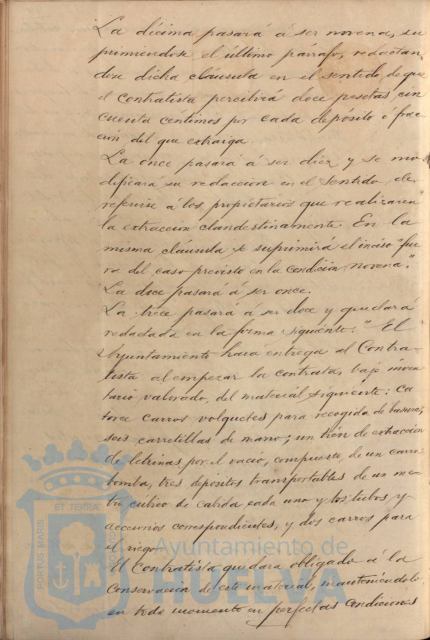 La décima pasará á ser novena, su
primiéndose el último párrafo, redactan
dose dicha cláusula en el sentido, de que
el contratista percibirá doce pesetas cin
cuenta céntimos por cada depósito ó frac
ción del que extraiga
La once pasará á ser diez y se mo
dificará su redaccion en el sentido de
referirse á los propietarios que realizaren
la extraccion clandestinamente. En la
misma cláusula se suprimirá el inciso "fue
ra del caso previsto en la condición novena".
La doce pasará á ser once.
La trece pasará á ser doce y quedará
redactada en la forma siguiente: "El
Ayuntamiento hará entrega al Contra-
tista al empezar la contrata, bajo inven
tario valorado, del material siguiente: Ca
torce carros volquetes para recogida de basuras,
seis carretillas de mano; un trén de extracción
de letrinas por el vacio, compuesto de un carro
bomba, tres depósitos transportables de un me
tro cúbico de cabida cada uno y los tubos y
accesorios correspondientes, y dos carros para
el riego.
El Contratista quedará obligado á la
conservacion de este material, manteniéndolo
en todo momento en perfectas condiciones
PORTUS MARIS ET TERRAE
Ayuntamiento de
HUELVA